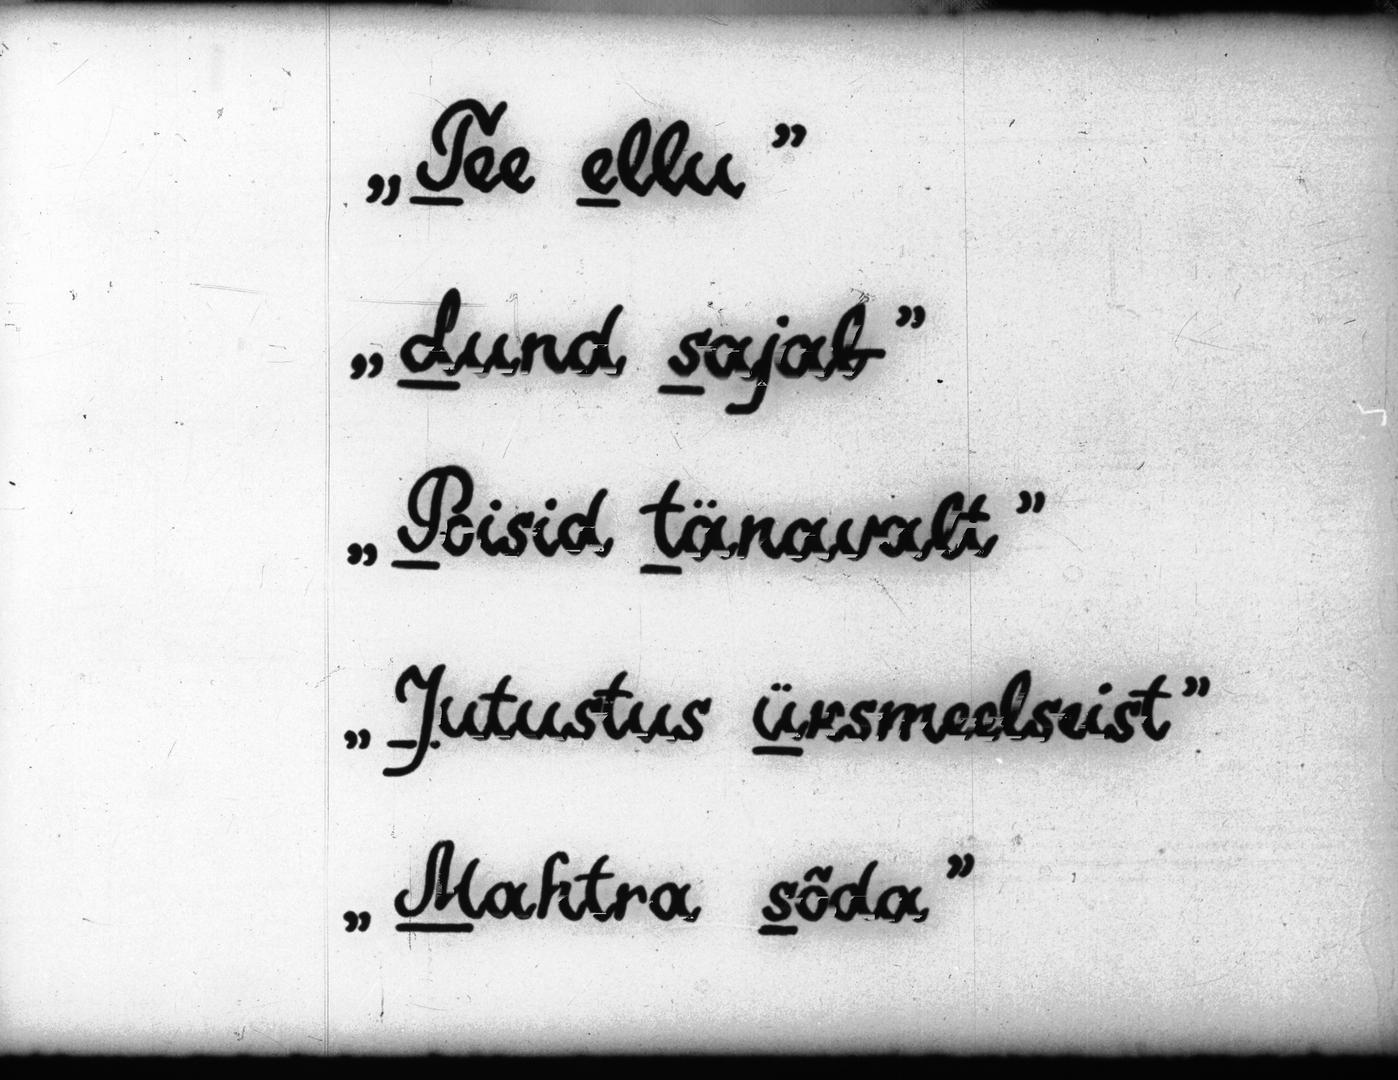 „Tee ellu”
„Lund sajab”
„Poisid tänavalt”
„Jutustus üksmeelseist”
„Mahtra sõda”